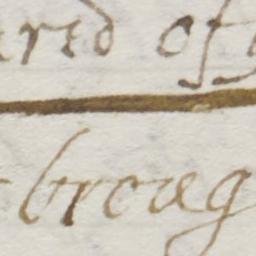 ared of
broug